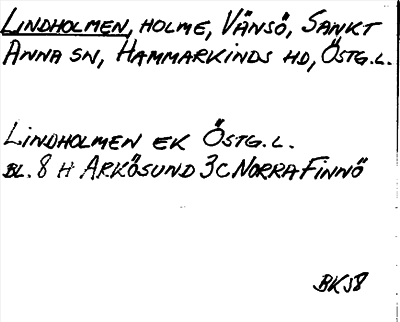 LINDHOLMEN, HOLME, VÄNSÖ, SANKT
ANNA SN, HAMMARKINDS HD, ÖSTG.L.
LINDHOLMEN EK ÖSTG.L.
BL. 8 H ARKÖSUND 3C NORRA FINNÖ
BKS8